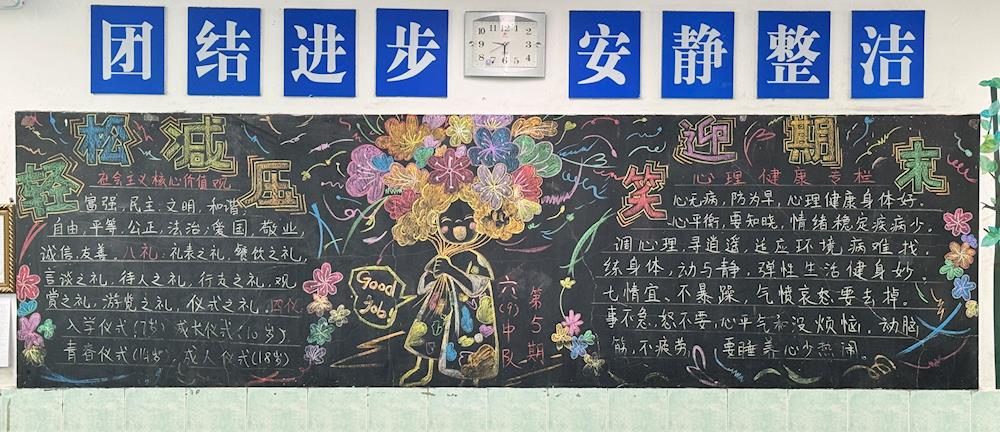 团结进步
安静整洁
轻松减压
社会主义核心价值观
富强,民主,文明,和谐,
自由,平等,公正,法治,爱国,敬业,
诚信,友善。八礼:礼表之礼,餐饮之礼,
言谈之礼,待人之礼,行走之礼,观
赏之礼,游览之礼,仪式之礼,四仪
入学仪式(7岁)成长仪式(10岁),
青春仪式(14岁),成人仪式(18岁)
Good
job!
六(9)中队
第5期
笑迎期末
心理健康专栏
心无病,防为早,心理健康身体好.
心平衡,要知晓,情绪稳定疾病少。
调心理,寻逍遥,适应环境,病难找
练身体,动与静,弹性生活健身妙
七情宜、不暴躁,气愤哀怒要去掉。
事不急,怒不要,心平气和没烦恼,动脑
筋,不疲劳,要睡养心少热闹。